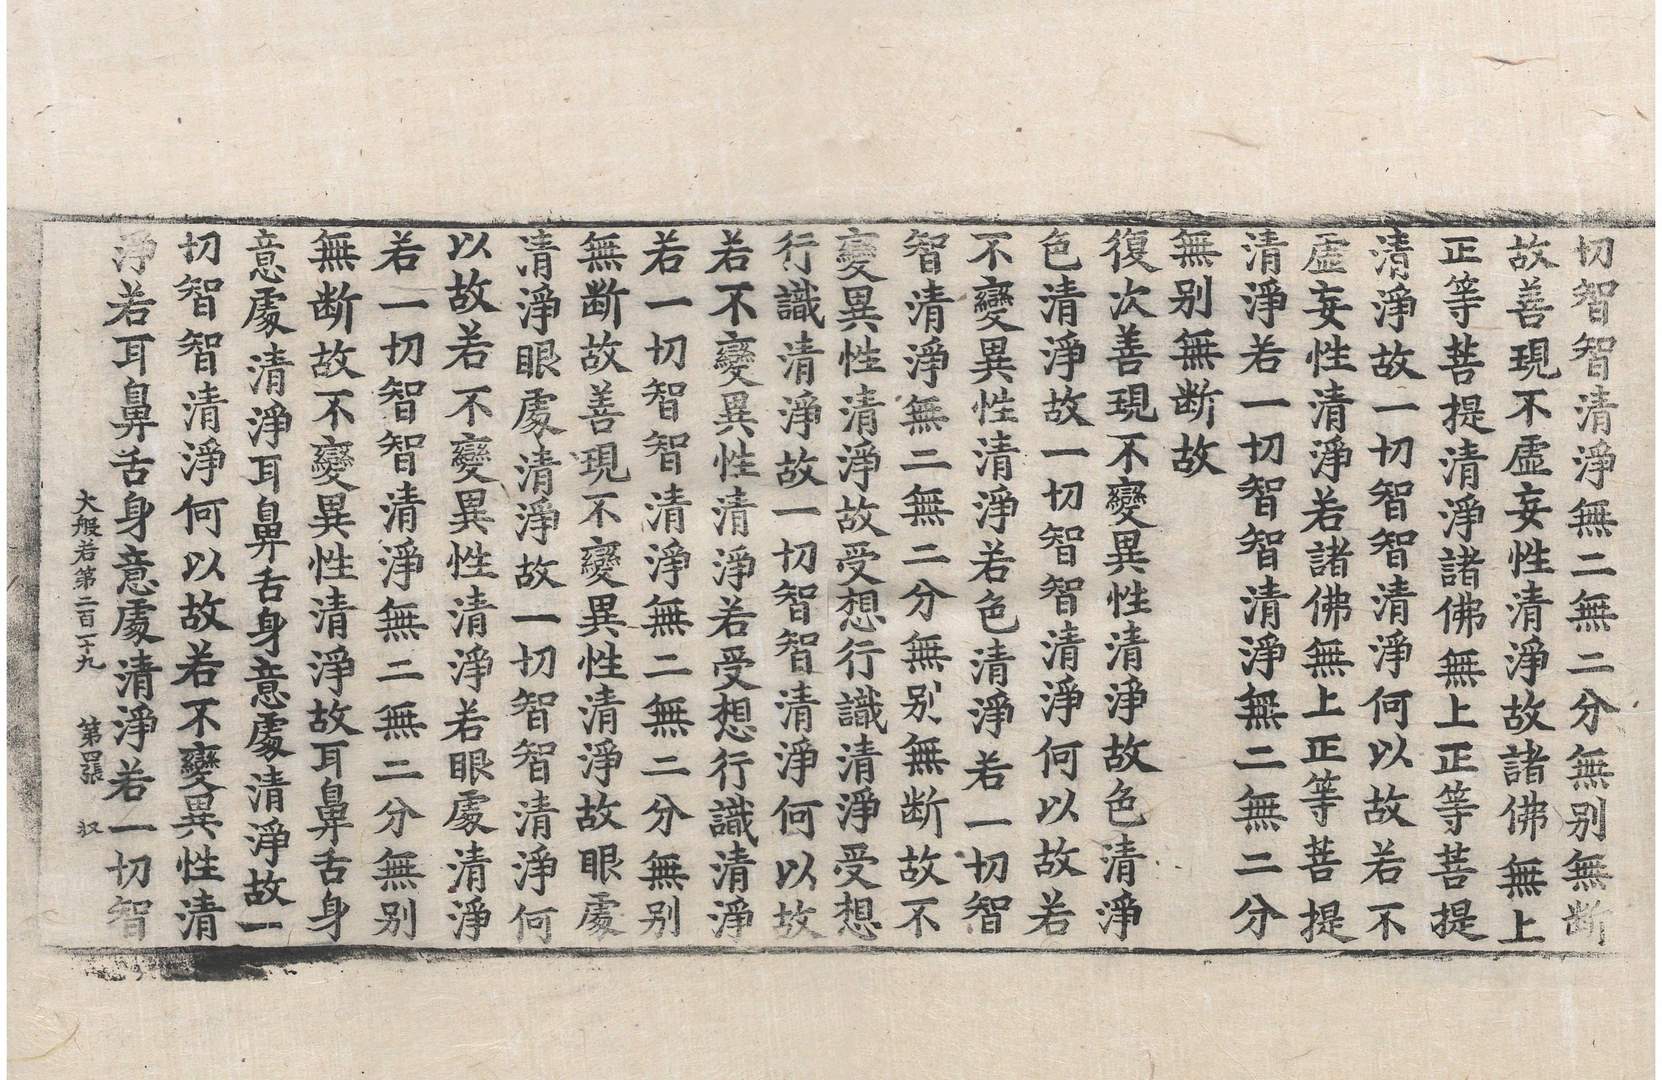 切智智清淨無二無二分無别無断
故善現不虛妄性清淨故諸佛無上
正等菩提清淨諸佛無上正等菩提
清淨故一切智智清淨何以故若不
虛妄性清淨若諸佛無上正等菩提
清淨若一切智智清淨無二無二分
無别無断故
復次善現不變異性清淨故色清淨
色清淨故一切智智清淨何以故若
不變異性清淨若色清淨若一切智
智清淨無二無二分無别無断故不
變異性清淨故受想行識清淨受想
行識清淨故一切智智清淨何以故
若不變異性清淨若受想行識清淨
若一切智智清淨無二無二分無别
無断故善現不變異性清淨故眼處
清淨眼處清淨故一切智智清淨何
以故若不變異性清淨若眼處清淨
若一切智智清淨無二無二分無别
無断故不變異性清淨故耳鼻舌身
意處清淨耳鼻舌身意處清淨故一
切智智清淨何以故若不變異性清
淨若耳鼻舌身意處清淨若一切智
大般若第二百一十九 第四張 収